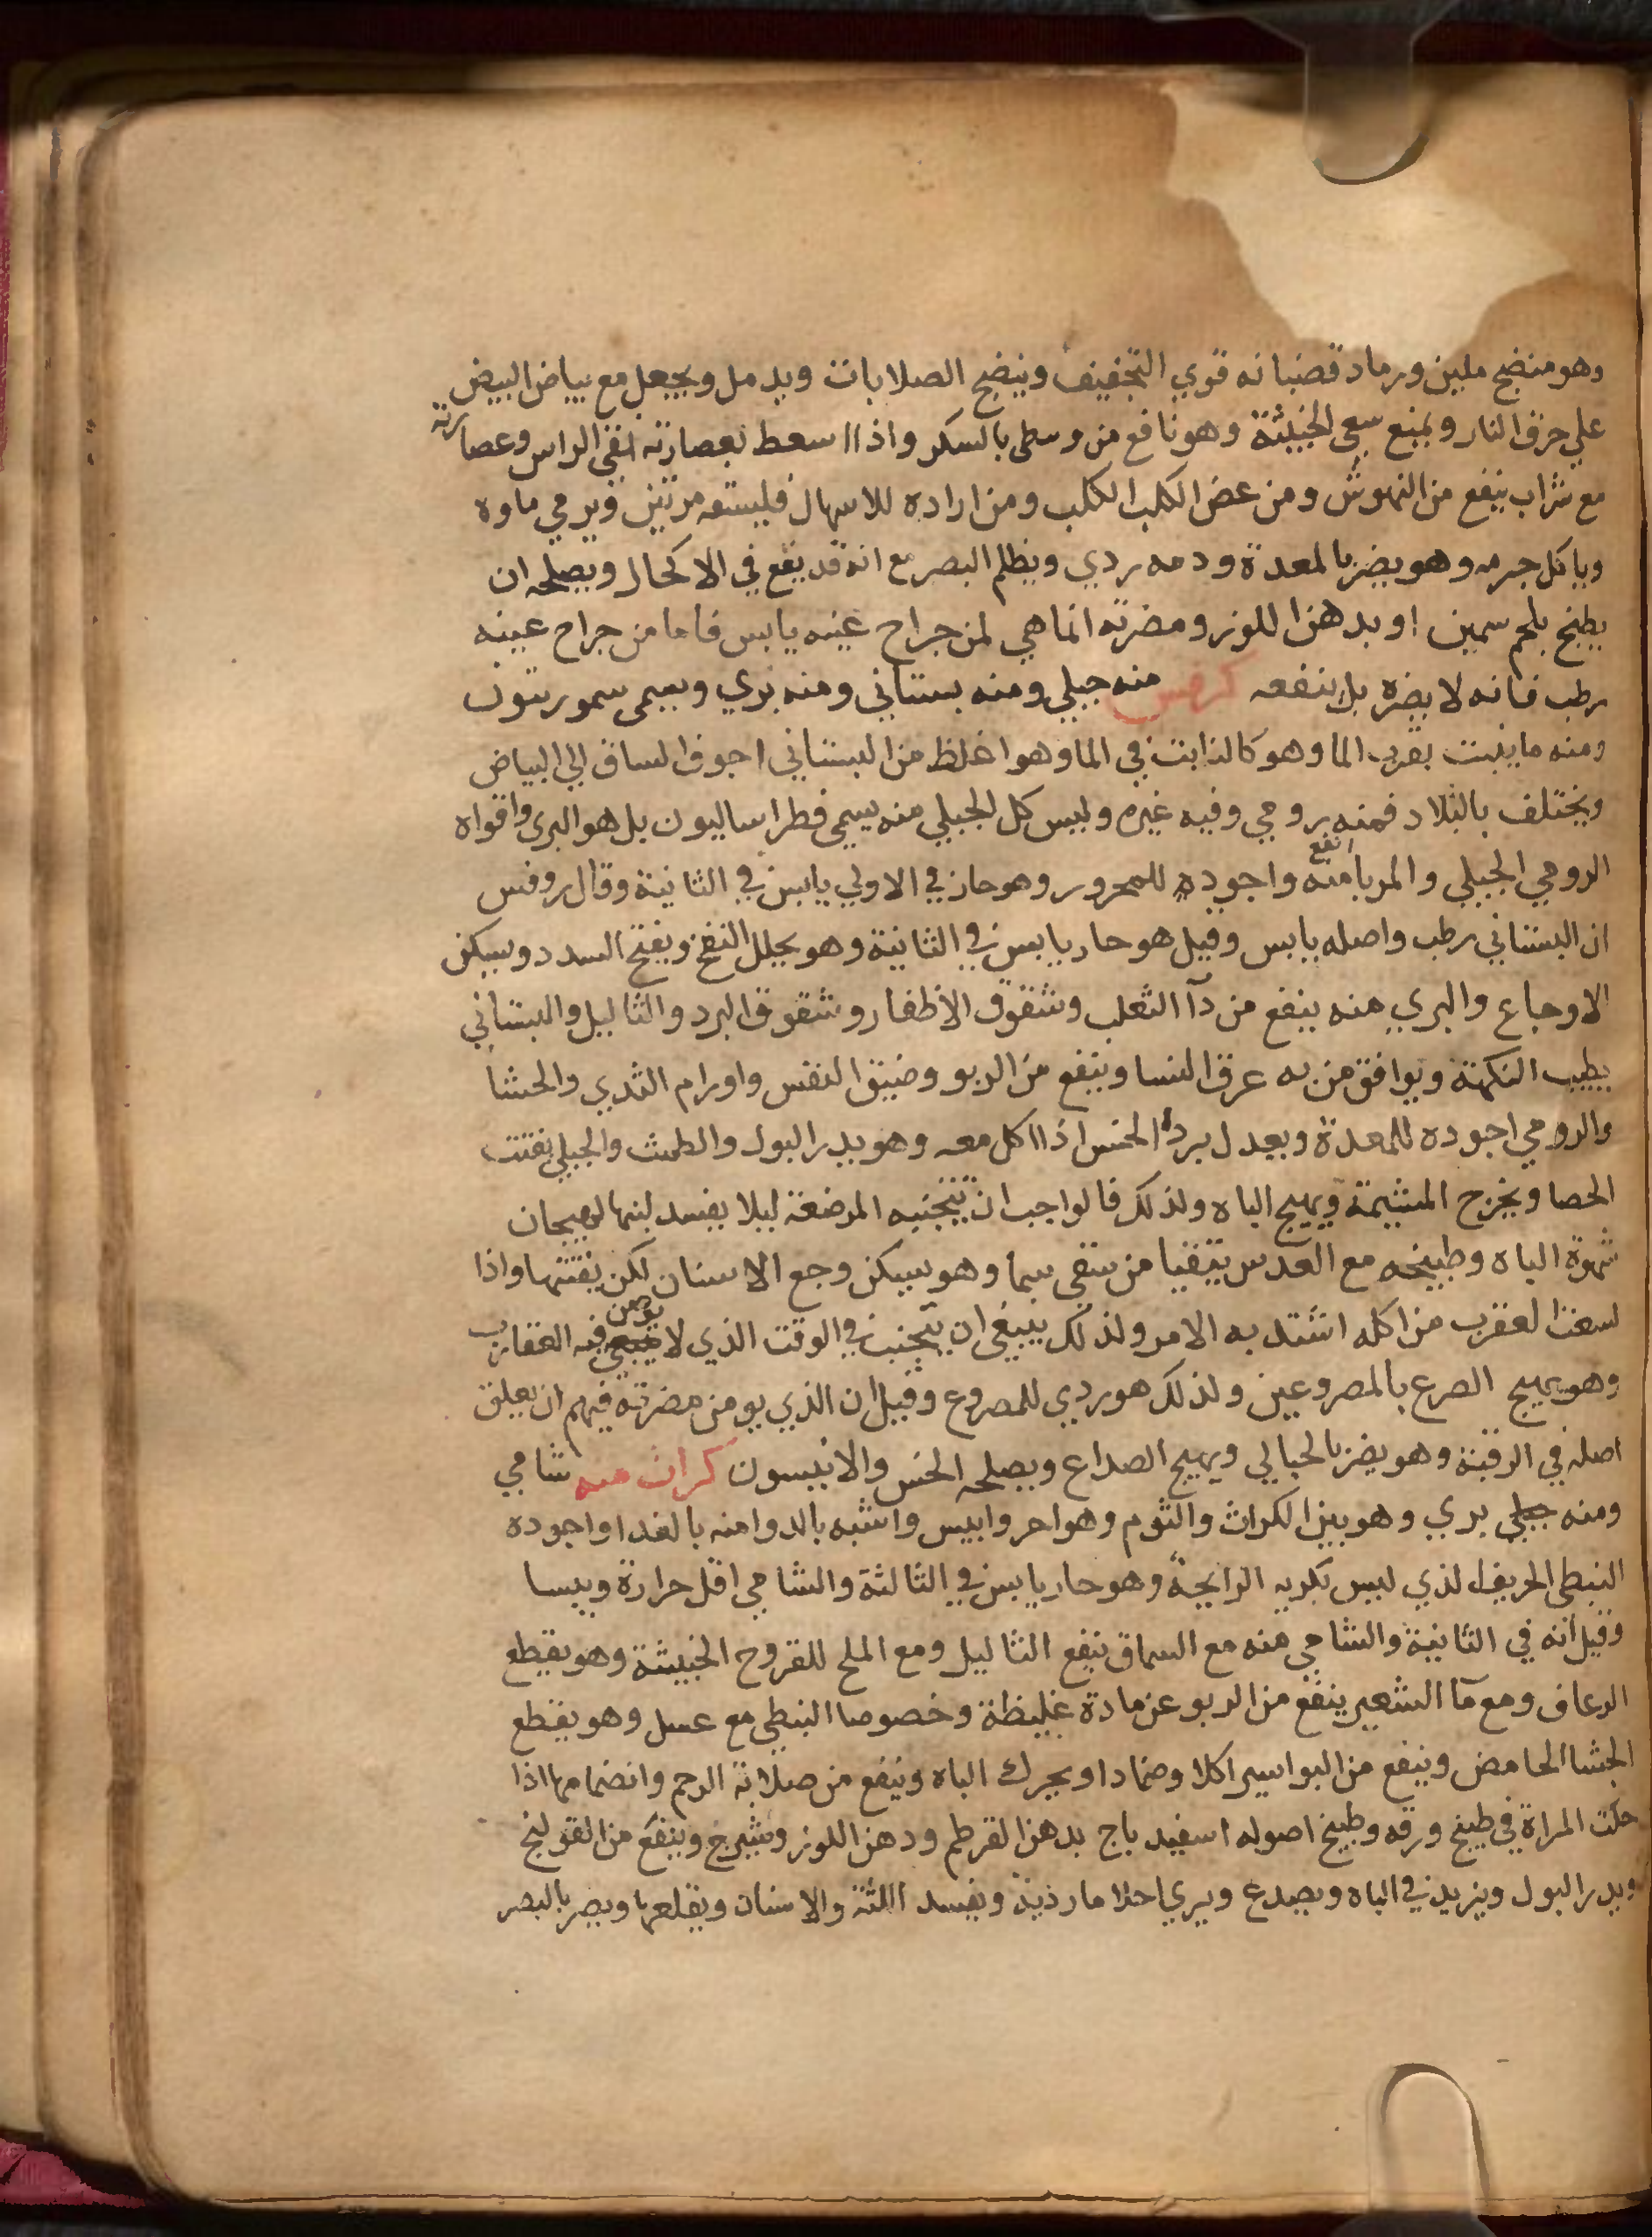 وهو منضج ملين ورماد قضبانه قوي التجفيف وينضج الصلابات ويدمل ويجعل مع بياض البيض
علي حرق النار ويمنع سعي الخبيثة وهو نافع من وسطي بالسكر واذا اسعط بعصارته انقي الراس وعصارته
مع شراب ينفع من النهوش ومن عض الكلب الكلب ومن اراده للاسهال فليسلقه مرتين ويرمي ماوه
وياكل جرمه وهو يضر بالمعدة ودمه ردي ويظلم البصر مع انه قد يقع في الاكحال ويصلحه ان
يطبخ بلحم سمين او بدهن اللوز ومضرته انما هي لمن جراح عينه يابس فاما من جراح عينه
رطب فانه لا يضره بل ينفعه كرفس منه جبلي ومنه بستاني ومنه بري ويسمي سمورنيون
ومنه ما ينبت بقرب الما وهو كالنابت في الما وهو اغلظ من البستاني اجوف الساق الي البياض
ويختلف بالبلاد فمنه رومي وفيه غيره وليس كل الجبلي منه يسمي فطراساليون بل هو البري واقواه
الرومي الجبلي والمربا منه انفع واجوده للمحرور وهو حار في الاولي يابس في الثانية وقال روفس
ان البستاني رطب واصله يابس وقيل هو حار يابس في الثانية وهو يحلل النفخ ويفتح السدد ويسكن
الاوجاع والبري منه ينفع من دآ الثعلب وشقوق الاظفار وشقوق البرد والثاليل والبستاني
يطيب النكهة ويوافق من به عرق النسا وينفع من الربو وضيق النفس واورام الثدي والحشا
والرومي اجوده للمعدة ويعدل برد الخس اذا اكل معه وهو يدر البول والطمث والجبلي يفتت
الحصا ويخرج المشيمة ويهيج الباه ولذلك فالواجب ان تتجنبه المرضعة ليلا يفسد لبنها لهيجان
شهوة الباه وطبيخه مع العدس يتقيا من سقي سما وهو يسكن وجع الاسنان لكن يفتتها واذا
لسغت العقرب من اكله اشتد به الامر ولذلك ينبغي ان يتجنب في الوقت الذي لا يومن فيه العقارب
وهو يهيج الصرع بالمصروعين ولذلك هو ردي للمصروع وقيل ان الذي يومن مضرته فيهم ان يعلق
اصله في الرقبة وهو يضر بالحبالي ويهيج الصداع ويصلحه الخس والانيسون كراث منه شامي
ومنه جبلي بري وهو بين الكراث والثوم وهو احر وايبس واشبه بالدوا منه بالغدا واجوده
النبطي الحريف الذي ليس بكريه الرايحة وهو حار يابس في الثالثة والشامي اقل حرارة ويبسا
وقيل انه في الثانية والشامي منه مع السماق ينفع الثاليل ومع الملح للقروح الخبيثة وهو يقطع
الرعاف ومع مآ الشعير ينفع من الربو عن مادة غليظة وخصوصا النبطي مع عسل وهو يقطع
الجشا الحامض وينفع من البواسير اكلا وضمادا ويحرك الباه وينفع من صلابة الرحم وانضمامها اذا
جلست المراة في طبيخ ورقه وطبيخ اصوله اسفيدباج بدهن القرطم ودهن اللوز وشيرج وينفع من القولنج
ويدر البول ويزيد في الباه ويصدع ويري احلاما رذية ويفسد اللثة والاسنان ويقلعها ويضر بالبصر